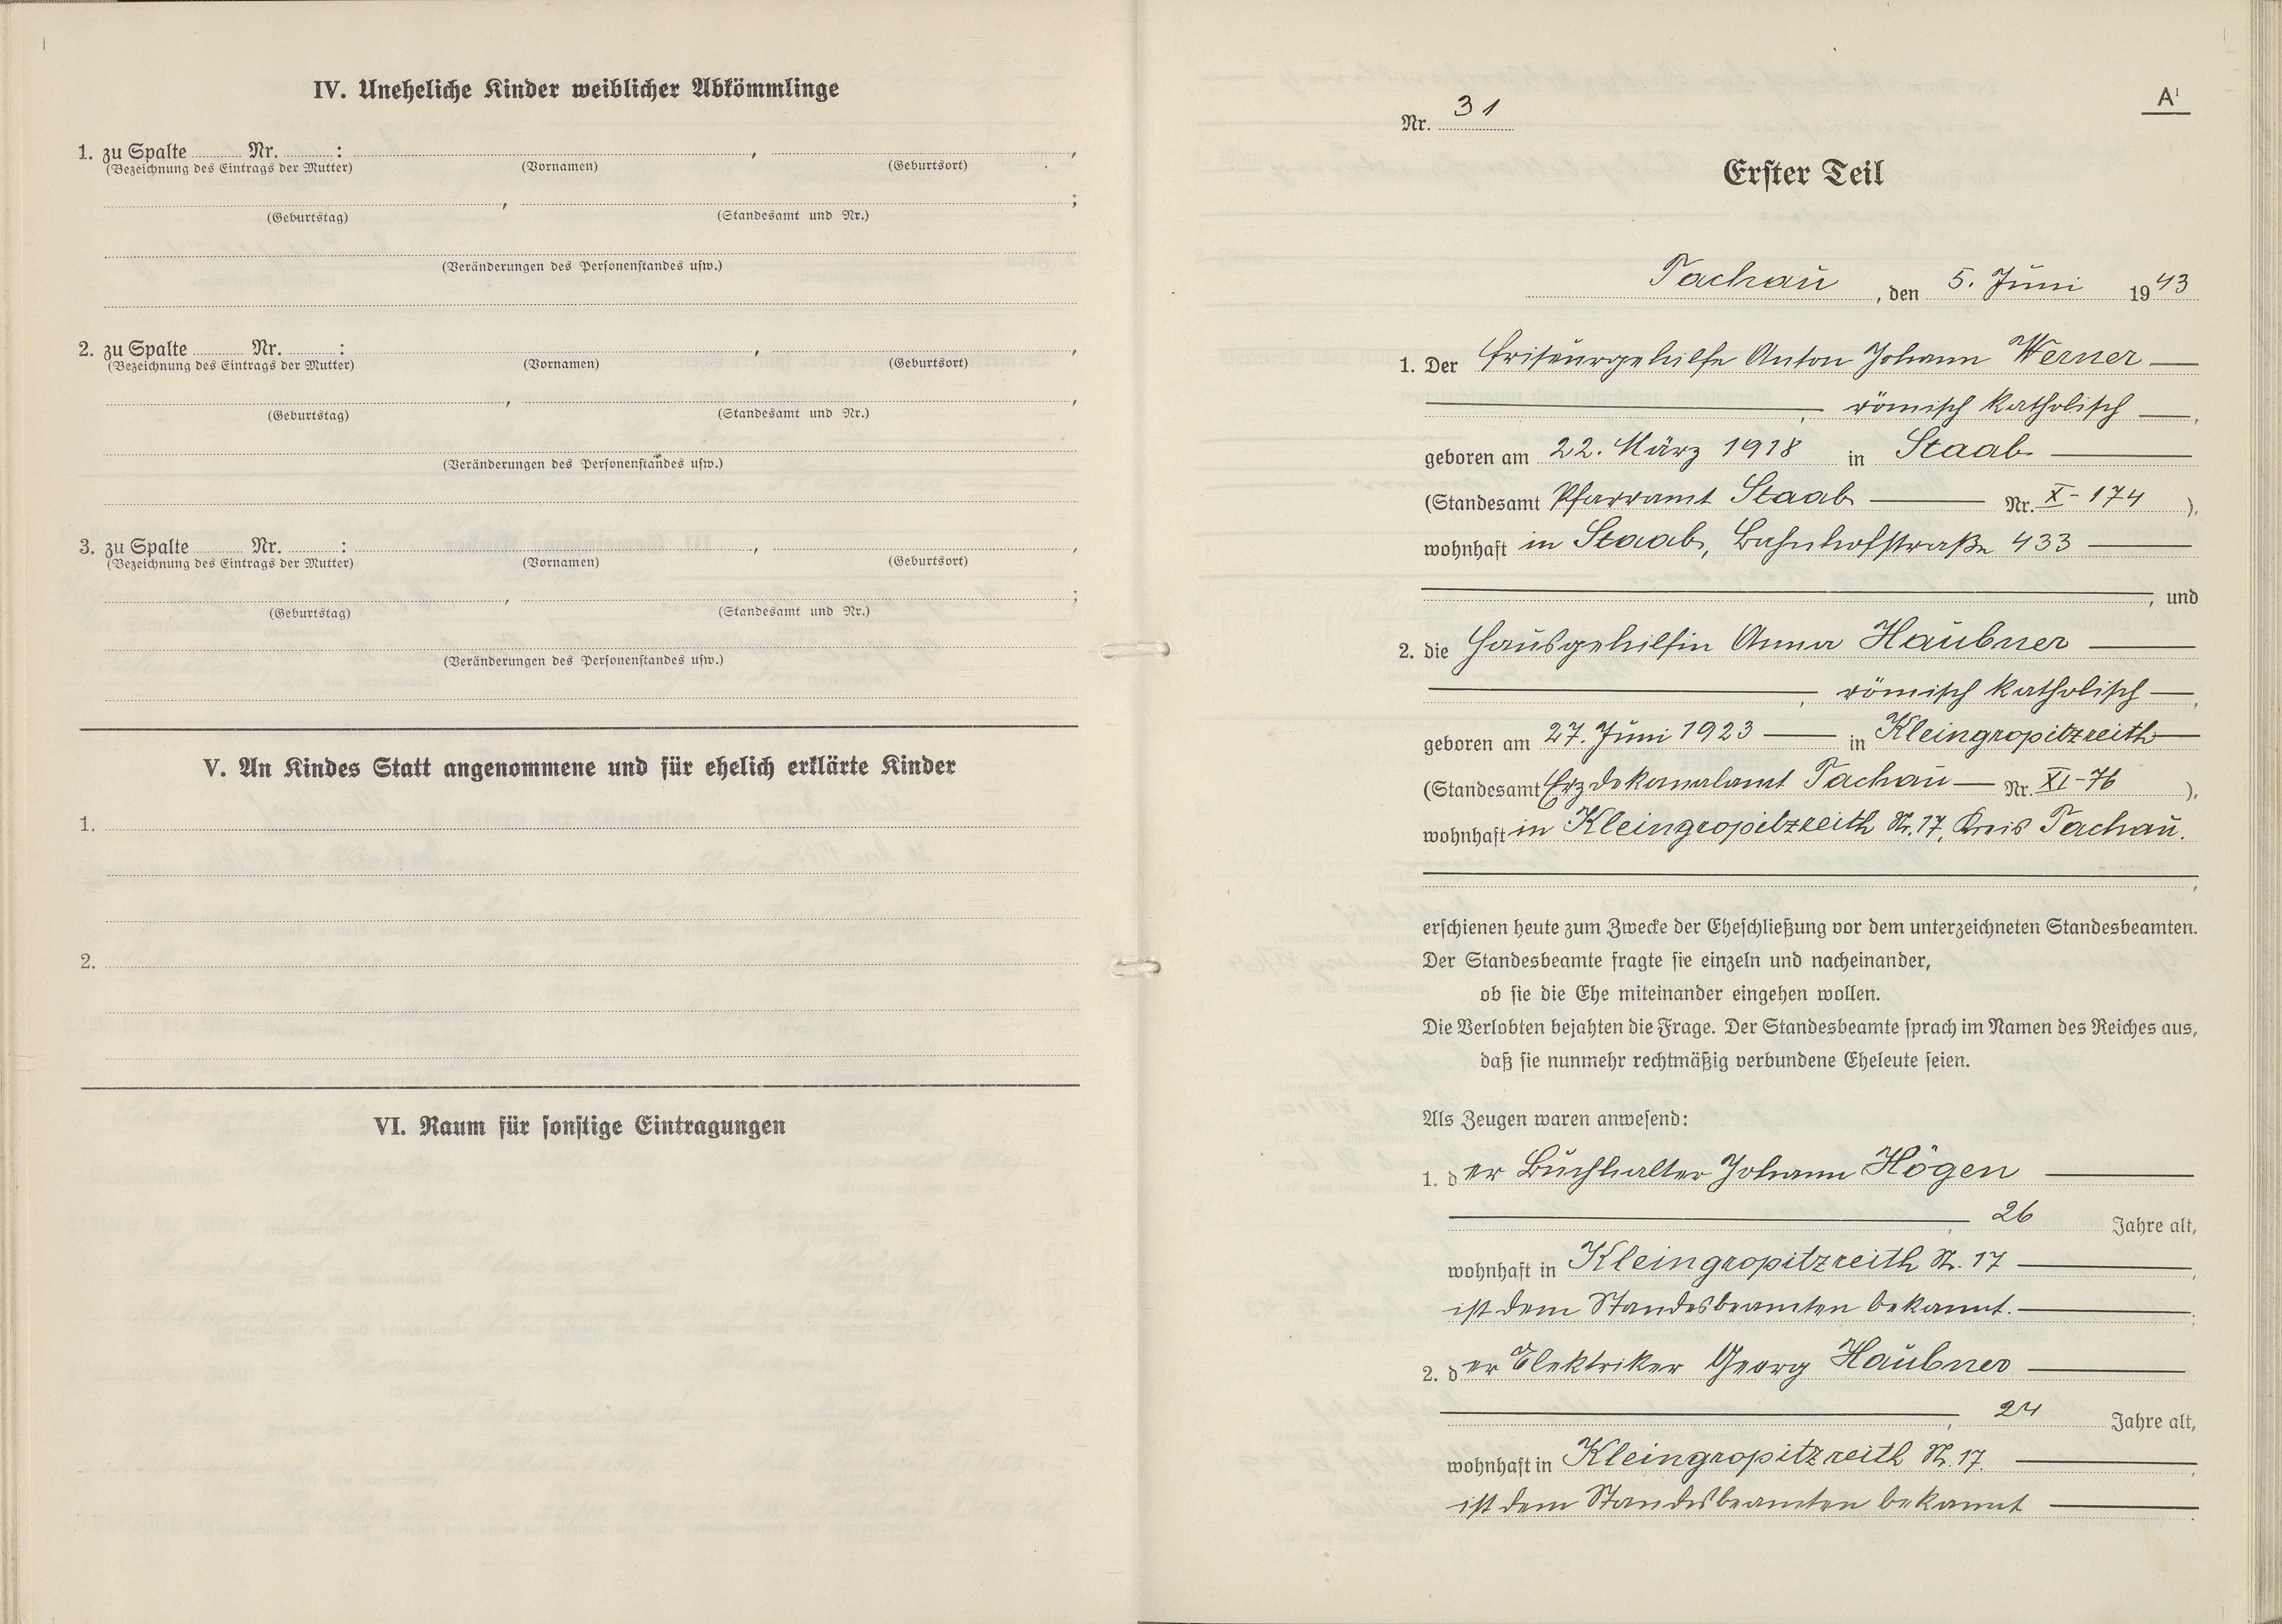 IV. Uneheliche Kinder weiblicher Abkömmlinge
1. zu Spalte Nr. : , ,
(Bezeichnung des Eintrags der Mutter) (Vornamen) (Geburtsort)
, ;
(Geburtstag) (Standesamt und Nr.)
(Veränderungen des Personenstandes usw.)
2. zu Spalte Nr. : , ,
(Bezeichnung des Eintrags der Mutter) (Vornamen) (Geburtsort)
, ,
(Geburtstag) (Standesamt und Nr.)
(Veränderungen des Personenstandes usw.)
3. zu Spalte Nr. : , ,
(Bezeichnung des Eintrags der Mutter) (Vornamen) (Geburtsort)
, ;
(Geburtstag) (Standesamt und Nr.)
(Veränderungen des Personenstandes usw.)
V. An Kindes Statt angenommene und für ehelich erklärte Kinder
1.
2.
VI. Raum für sonstige Eintragungen
A¹
Nr. 31
Erster Teil
Tachau, den 5. Juni 1943
1. Der Friseurgehilfe Anton Johann Werner
, römisch katholisch,
geboren am 22. März 1918 in Staab
(Standesamt Pfarramt Staab Nr. X-174 ),
wohnhaft in Staab, Bahnhofstraße 433
, und
2. die Hausgehilfin Anna Haubner
, römisch katholisch,
geboren am 27. Juni 1923 in Kleingropitzreith
(Standesamt Erzdekanalamt Tachau Nr. XI-76 ),
wohnhaft in Kleingropitzreith Nr. 17, Kreis Tachau.
,
erschienen heute zum Zwecke der Eheschließung vor dem unterzeichneten Standesbeamten.
Der Standesbeamte fragte sie einzeln und nacheinander,
ob sie die Ehe miteinander eingehen wollen.
Die Verlobten bejahten die Frage. Der Standesbeamte sprach im Namen des Reiches aus,
daß sie nunmehr rechtmäßig verbundene Eheleute seien.
Als Zeugen waren anwesend:
1. der Buchhalter Johann Högen
, 26 Jahre alt,
wohnhaft in Kleingropitzreith Nr. 17,
ist dem Standesbeamten bekannt.;
2. der Elektriker Georg Haubner
, 24 Jahre alt,
wohnhaft in Kleingropitzreith Nr. 17.,
ist dem Standesbeamten bekannt.